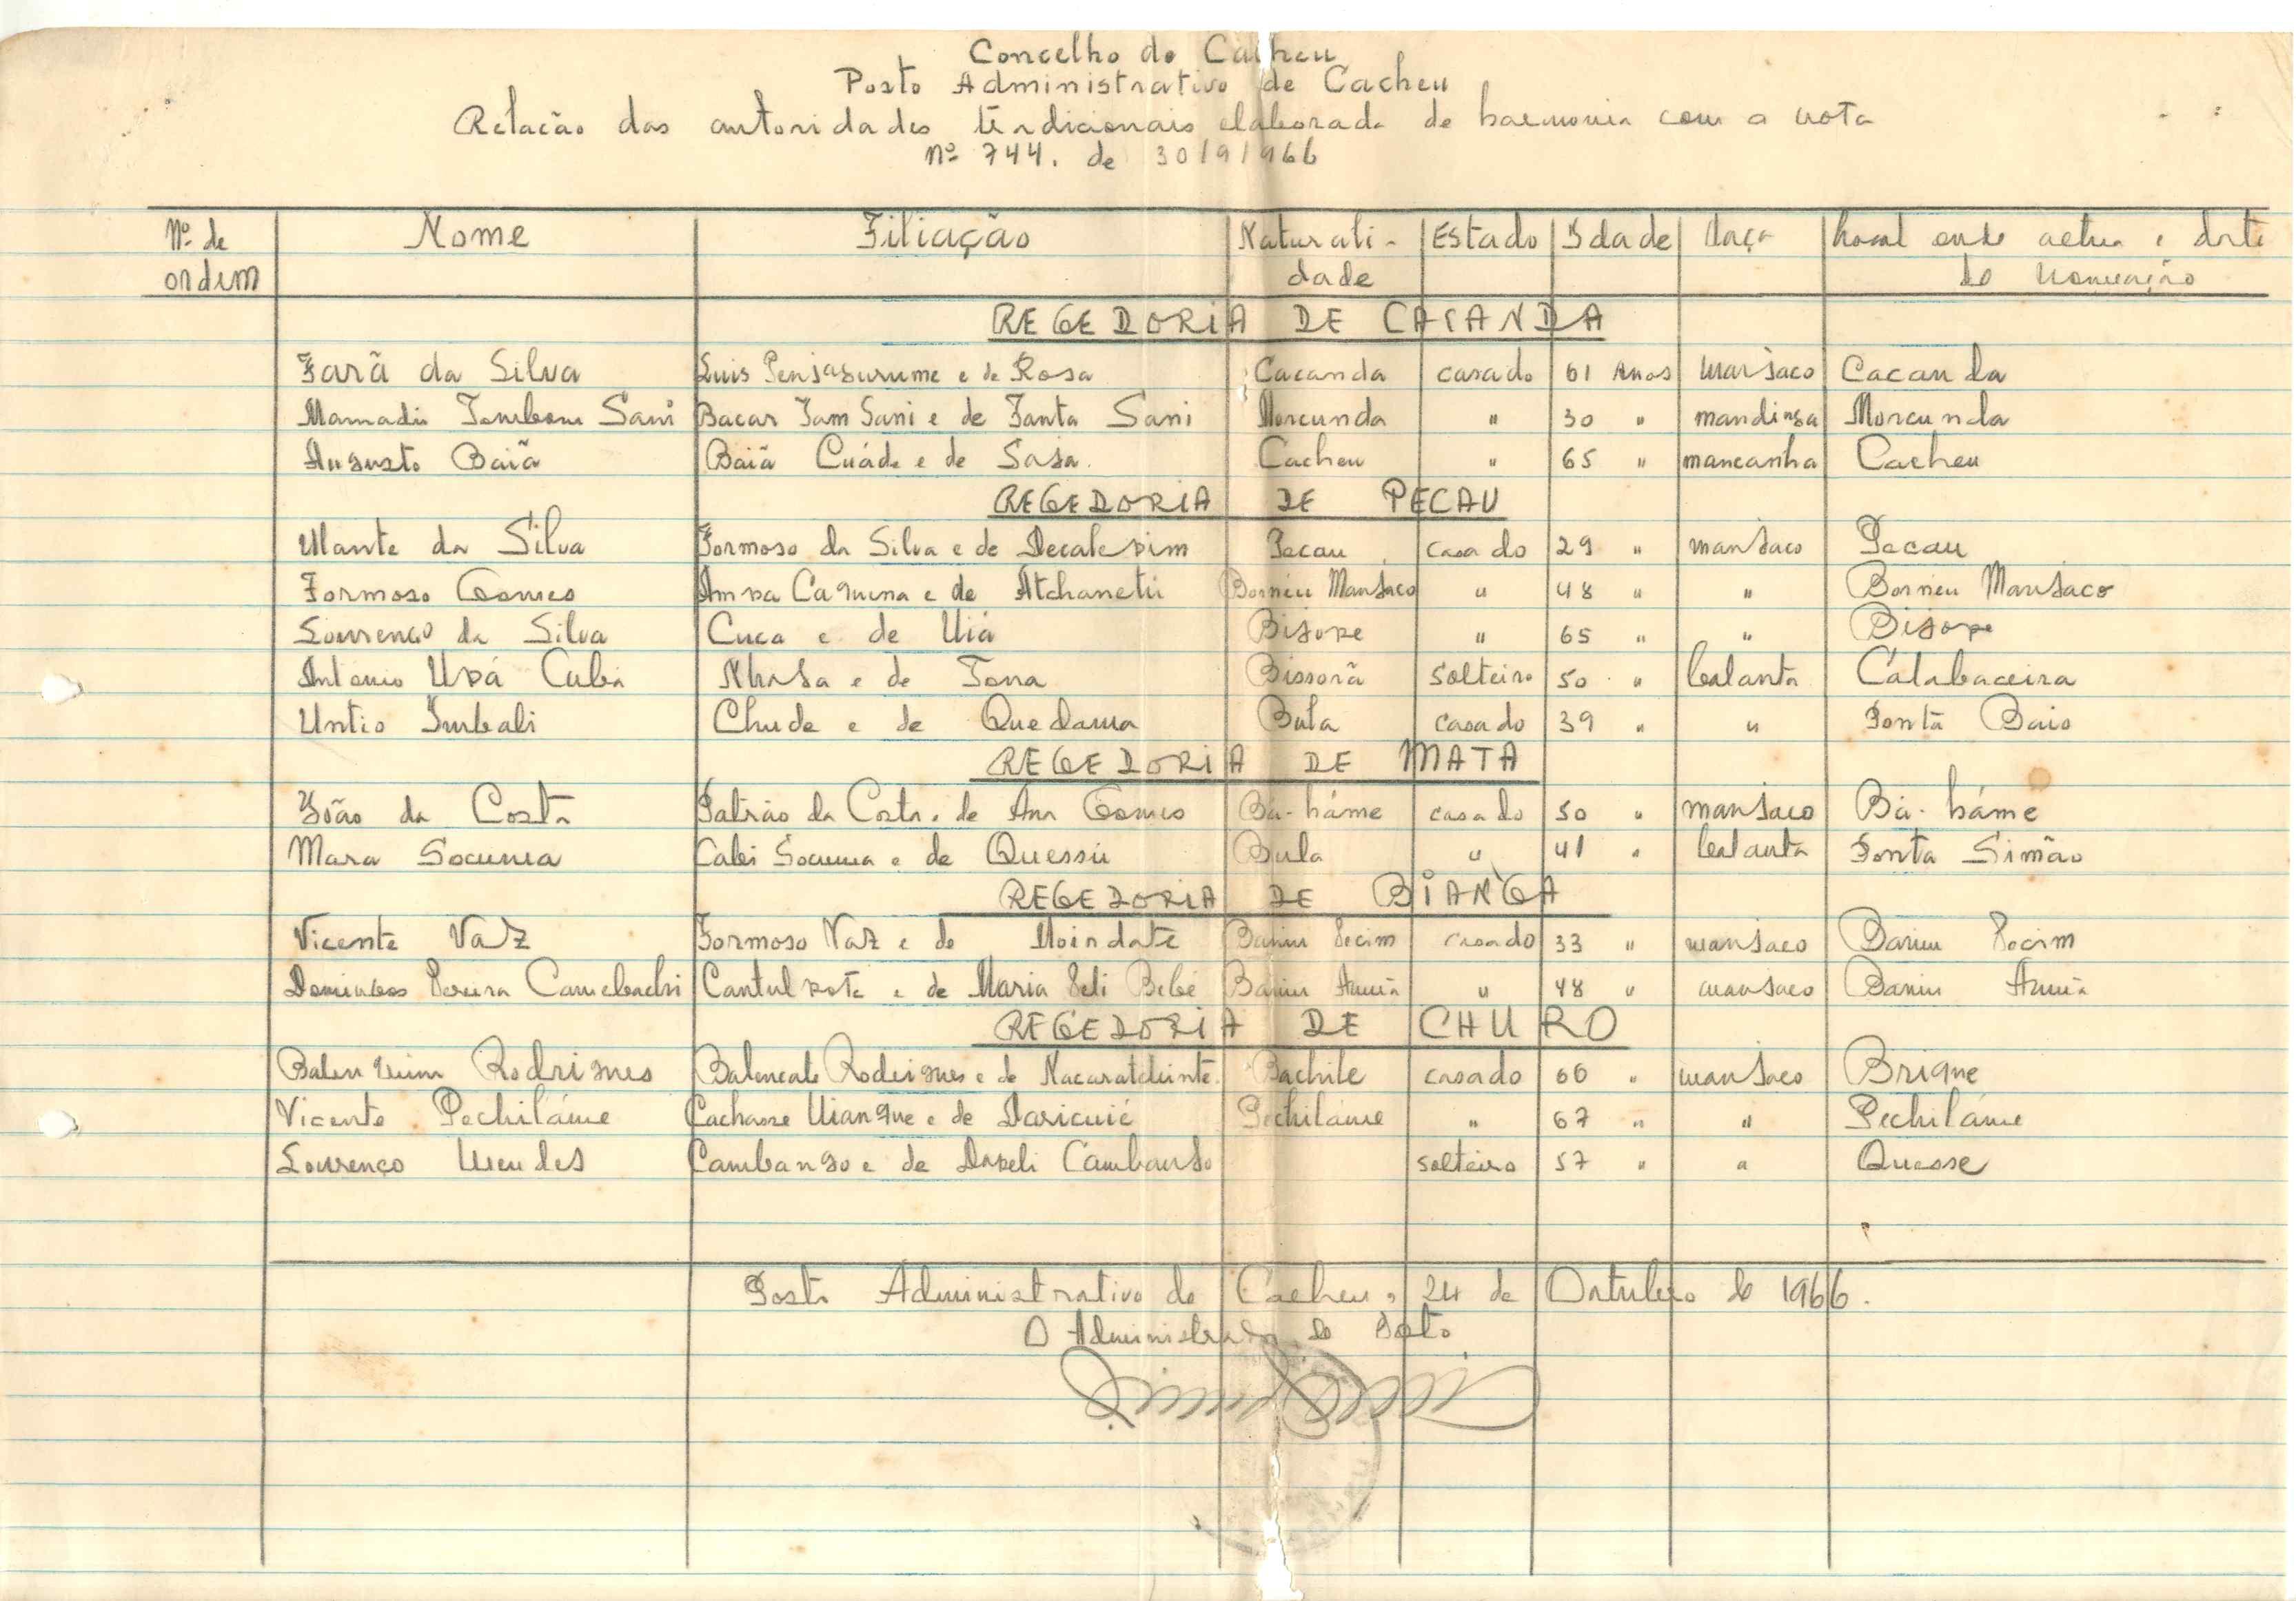 Concelho de Cacheu
Posto Administrativo de Cacheu
Relação das autoridades tradicionais elaborada de harmonia com a nota
Nº 744. de 30/9/966
Nº de ordem | Nome | Filiação | Naturalidade | Estado | Idade | Raça | Local onde actua e data de nomeação
REGEDORIA DE CACANDA
Fará da Silva | Luis e de Rosa | Cacanda | casado | 61 Anos | manjaco | Cacanda
Mamadu Sani | Bacar Jam Sani e de Fanta Sani | Morcunda | " | 30 " | mandinga | Morcunda
Augusto Baiã | Baiã Cuáde e de Sasa. | Cacheu | " | 65 " | mancanha | Cacheu
REGEDORIA DE PECAU
Ulante da Silva | Formoso da Silva e de | Pecau | casado | 29 " | manjaco | Pecau
Formoso Gomes | e de | Borneu Manjaco | " | 48 " | " | Borneu Manjaco
Lourenço da Silva | Cuca e de Uiá | Bijope | " | 65 " | " | Bijope
Antonio Upá Cubá | e de Tona | Bissorã | solteiro | 50 " | balanta | Calabaceira
Untio Imbali | Chude e de Quedama | Bula | casado | 39 " | " | Ponta Baio
REGEDORIA DE MATA
João da Costa | Patrão da Costa e de Ana Gomes | Bá-háme | casado | 50 " | manjaco | Bá-háme
Mara Socuma | Cabi Socuma e de Quessú | Bula | " | 41 " | balanta | Ponta Simão
REGEDORIA DE BIANGA
Vicente Vaz | Formoso Vaz e de | Baniu Pecim | casado | 33 " | manjaco | Baniu Pecim
Domingos Pereira | e de Maria Bebé | Baniu | " | 48 " | manjaco | Baniu
REGEDORIA DE CHURO
Rodrigues | Rodrigues e de | Bachile | casado | 66 " | manjaco | Brique
Vicente Pechiláme | Uiangue e de | Pechiláme | " | 67 " | " | Pechiláme
Lourenço Mendes | Cambanjo e de Cambanjo | solteiro | 57 " | " | Quesse
Posto Administrativo de Cacheu, 24 de Outubro de 1966.
O Administrador do Posto